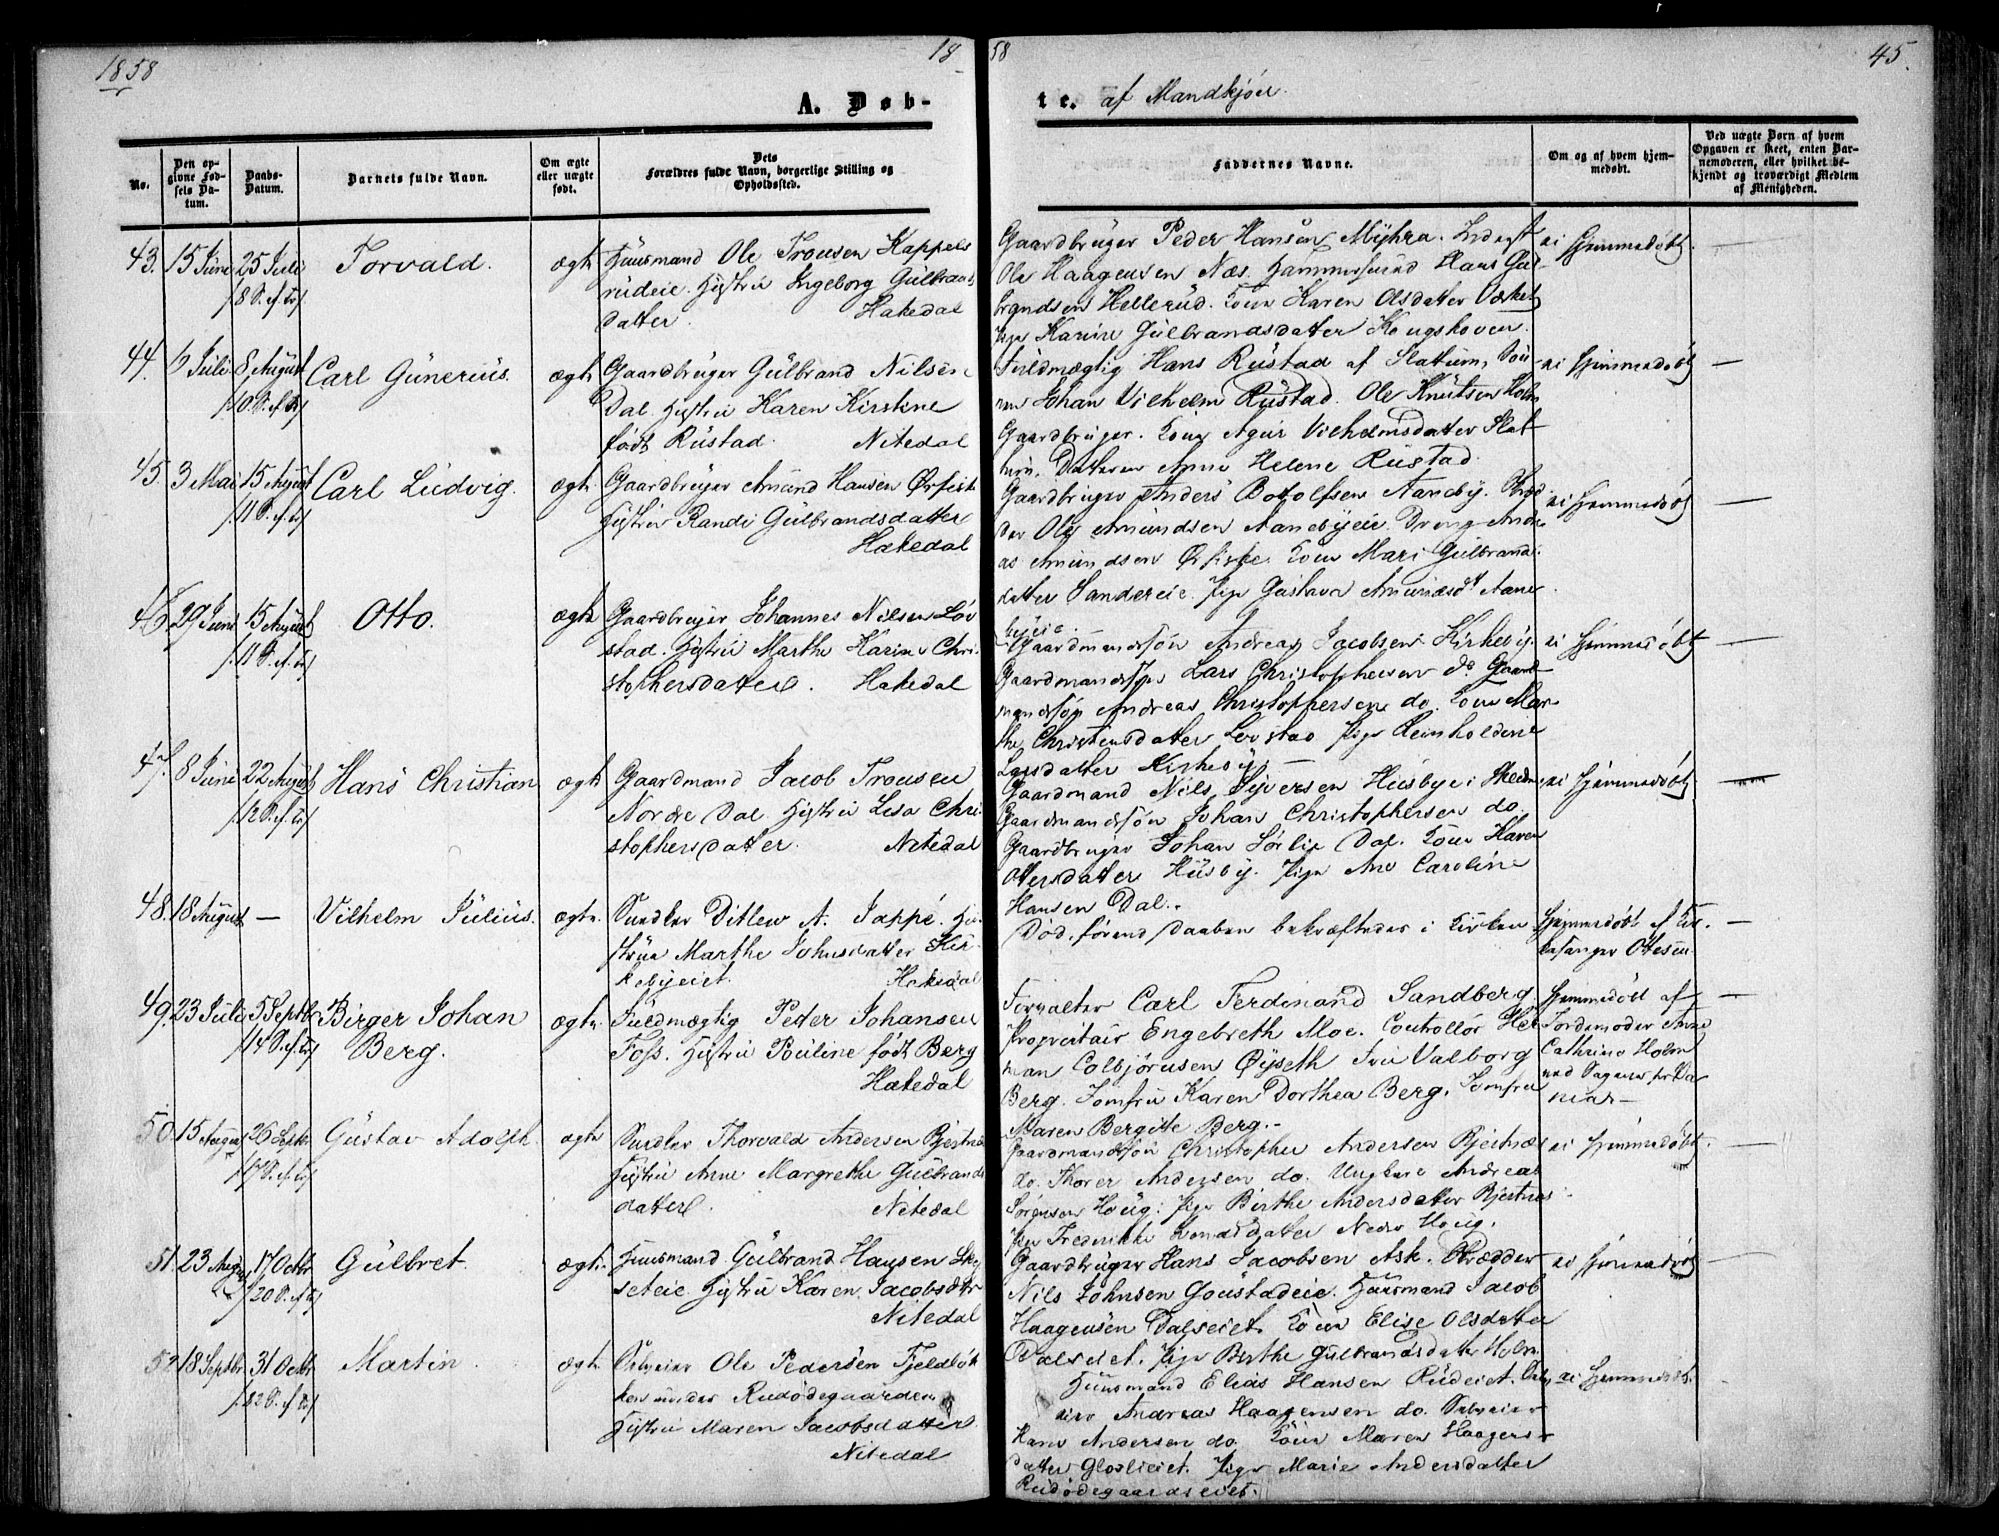 1858
18
58
45.
A. Døb-
te. af Mandkjön.
No.
Den op-
givne Fød-
sels Da-
tum.
Daabs-
Datum.
Barnets fulde Navn.
Om ægte
eller uægte
født.
Dets
Forældres fulde Navn, borgerlige Stilling og
Opholdssted.
Faddernes Navne.
Om og af hvem hjem-
medøbt.
Ved uægte Børn af hvem
Opgaven er skeet, enten Bar-
nemoderen, eller hvilket be-
kjendt og troværdigt Medlem
af Menigheden.
43. 15 Juni 25 Juli Torvald. ægte
/8 S. ef. Tr/
Huusmand Ole Tronsen Kappels
rudeie. Hustru Ingeborg Gulbrands
datter. Hakedal
Gaardbruger Peder Hansen Myhra.
Ole Haagensen Næs. Hammersmed Hans Gul-
brandsen Hellerud. Kone Karen Olsdatter
Pige Karine Gulbrandsdatter Kongshoven.
ei hjemmedöbt. —
44. 6 Juli 8 August Carl Gunerius. ægte
/10 S. ef. Tr/
Gaardbruger Gulbrand Nilsen
Dal. Hustru Karen Kirstine
født Rustad. Nitedal
Fuldmægtig Hans Rustad af Slatum. Søn-
nen Johan Vilhelm Rustad. Ole Knutsen Holm
Gaardbruger. Kone Vilhelmsdatter Slat-
tum. Datteren Anne Helene Rustad.
ei hjemmedöbt —
45. 3 Mai 15 August Carl Ludvig. ægte
/11 S. ef. Tr/
Gaardbruger Amund Hansen Ørfisk
Hustru Randi Gulbrandsdatter
Hakedal
Gaardbruger Anders Botolfsen Aaneby.
Ole Amundsen Aanebyeie. Dreng Andre-
as Amundsen Ørfiske. Kone Mari Gulbrands
datter Sandereie. Pige Gustava Amundsdt Aane
byeie.
ei hjemmedöbt —
46. 29 Juni 15 August Otto. ægte
/11 S. ef. Tr/
Gaardbruger Johannes Nilsen Løv
stad. Hustru Marthe Karine Chri-
stophersdatter. Hakedal
Gaardmandssön Andreas Jacobsen Kirkeby.
Gaardmandssön Lars Christophersen do Gaard-
mandssön Andreas Christophersen do. Kone Mar-
the Christensdatter Lovstad Pige Reinholdine
Larsdatter Kirkeby. —
ei hjemmedöbt —
47. 8 Juni 22 August Hans Christian ægte
/12 S. ef. Tr/
Gaardmand Jacob Tronsen
Nordre Dal. Hustru Lisa Chri-
stophersdatter. Nitedal
Gaardmand Nils Syversen Husbye i
Gaardmandssön Johan Christophersen do.
Gaardbruger Johan Sörlie Dal. Kone Karen
Ottersdatter Husby. Pige Ane Caroline
Hansen Dal.
ei hjemmedöbt —
48. 18 August — Vilhelm Julius. ægte.
Ditlew A. Jappé. Hu-
strue Marthe Johnsdatter Kir-
kebyeiet. Hakedal
Död, forend Daaben bekræftedes i Kirken
Hjemmedöbt af Kir-
kesanger Ottesen. —
49. 23 Juli 5 Septbr Birger Johan ægte
/14 S. ef. Tr/ Berg.
Fuldmægtig Peder Johansen
Foss. Hustru Pouline födt Berg
Hakedal
Forvalter Carl Ferdinand Sandberg
Proprietair Engebreth Moe. Controllör Her-
man Colbjörnsen Øyseth Frü Valborg
Berg. Jomfru Karen Dorthea Berg. Jomfru
Maren Bergitte Berg.-
Hjemmedöbt af
Jordemoder Anne
Cathrine Holm
—
50. 15 August 26 Septbr Gustav Adolph. ægte
/17 S. ef. Tr/
Thorvald Andersen Bjertnæs
Hustru Anne Margrethe Gulbrands
datter. Nitedal
Gaardmandssön Christopher Andersen Bjertnæs
do. Thorer Andersen do. Ungkarl Andreas
Sørgensen Houg. Pige Birthe Andersdatter Bjertnæs
Pige Frederikke datter Nedre Houg.
ei hjemmedöbt. —
51. 23 August 17 Octbr Gulbret. ægte
/20 S. ef. Tr/
Huusmand Gulbrand Hansen
seteie Hustru Karen Jacobsdtr
Nitedal
Gaardbruger Hans Jacobsen Ask.
Nils Johnsen Goustadeie. Huusmand Jacob
Haagensen Dalseiet. Kone Elise Olsdatter
Dalseiet. Pige Berthe Gulbrandsdatter Holm.
ei hjemmedöbt —
52. 18 Septbr 31 Octbr Martin. ægte
/22 S. ef. Tr/
Ole Pedersen Fjeldlök
ken under Rudødegaarden
Hustru Maren Jacobsdatter
Nitedal
Huusmand Elias Hansen Rudeiet.
Andreas Haagensen do.
Hans Andersen do. Kone Maren Haagens-
datter Glosliet. Pige Marie Andersdatter
Rudödegaardseiet.
ei hjemmedöbt.